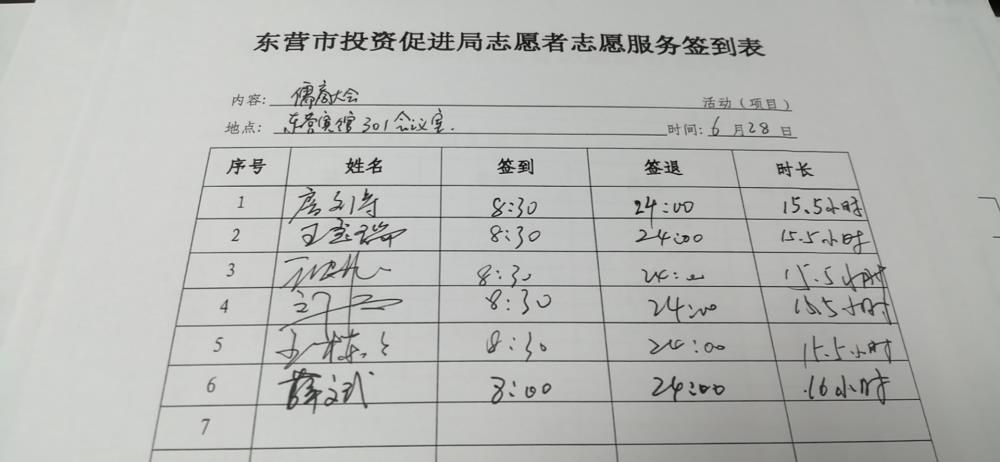 东营市投资促进局志愿者志愿服务签到表
内容: 儒商大会 活动（项目）
地点: 东营宾馆301会议室. 时间: 6月28日
序号 姓名 签到 签退 时长
1 8:30 24:00 15.5小时
2 王宝瑞 8:30 24:00 15.5小时
3 8:30 24:00 15.5小时
4 8:30 24:00 15.5小时
5 8:30 24:00 15.5小时
6 薛文武 8:00 24:00 16小时
7